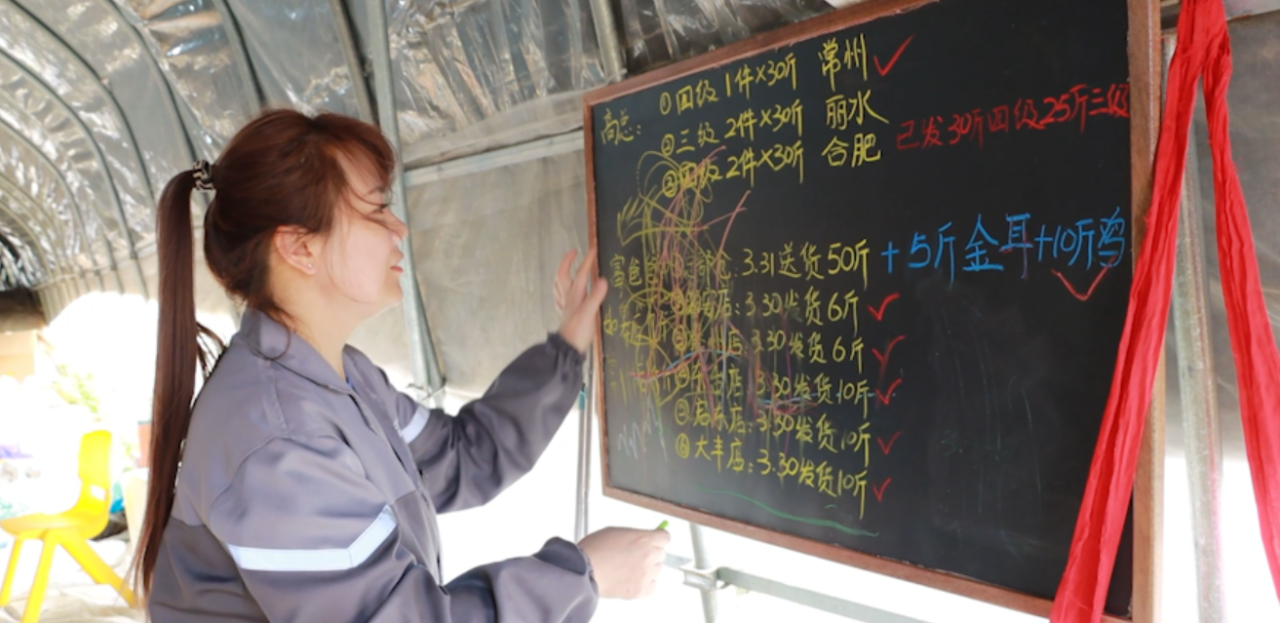 高总: ①四级 1件×30斤 常州 ✓
②三级 2件×30斤 丽水
②四级 2件×30斤 合肥 已发30斤四级25斤三级
3.31送货50斤 +5斤金耳+10斤鸡 ✓
店: 3.30发货6斤 ✓
店 3.30发货6斤 ✓
店 3.30发货10斤 ✓
店: 3.30发货10斤 ✓
⑥大丰店: 3.30发货10斤 ✓